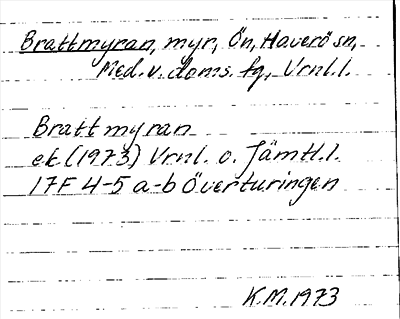 Brattmyran, myr, Ön, Haverö sn,
Med. v. doms. fg., Vrnl.l.
Brattmyran
ek. (1973) Vrnl. o. Jämtl.l.
17F 4-5 a-b Överturingen
K.M. 1973